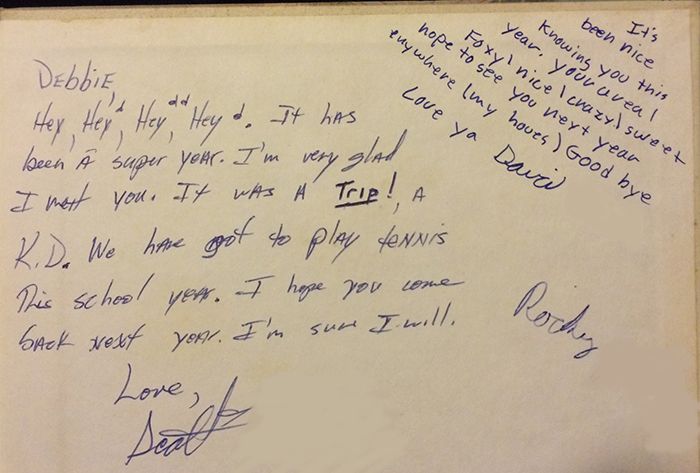 Debbie,
Hey, Hey d, Hey dd Hey d. It has
been A super year. I'm very glad
I mett you. It was A Trip!, A
K.D. We have got to play tennis
This school year. I hope you come
back next year. I'm sure I will.
Love,
It's
been nice
Knowing you this
year, your a real
Foxy/nice/crazy/sweet
hope to see you next year
anywhere (my house) Good bye
Love ya
David